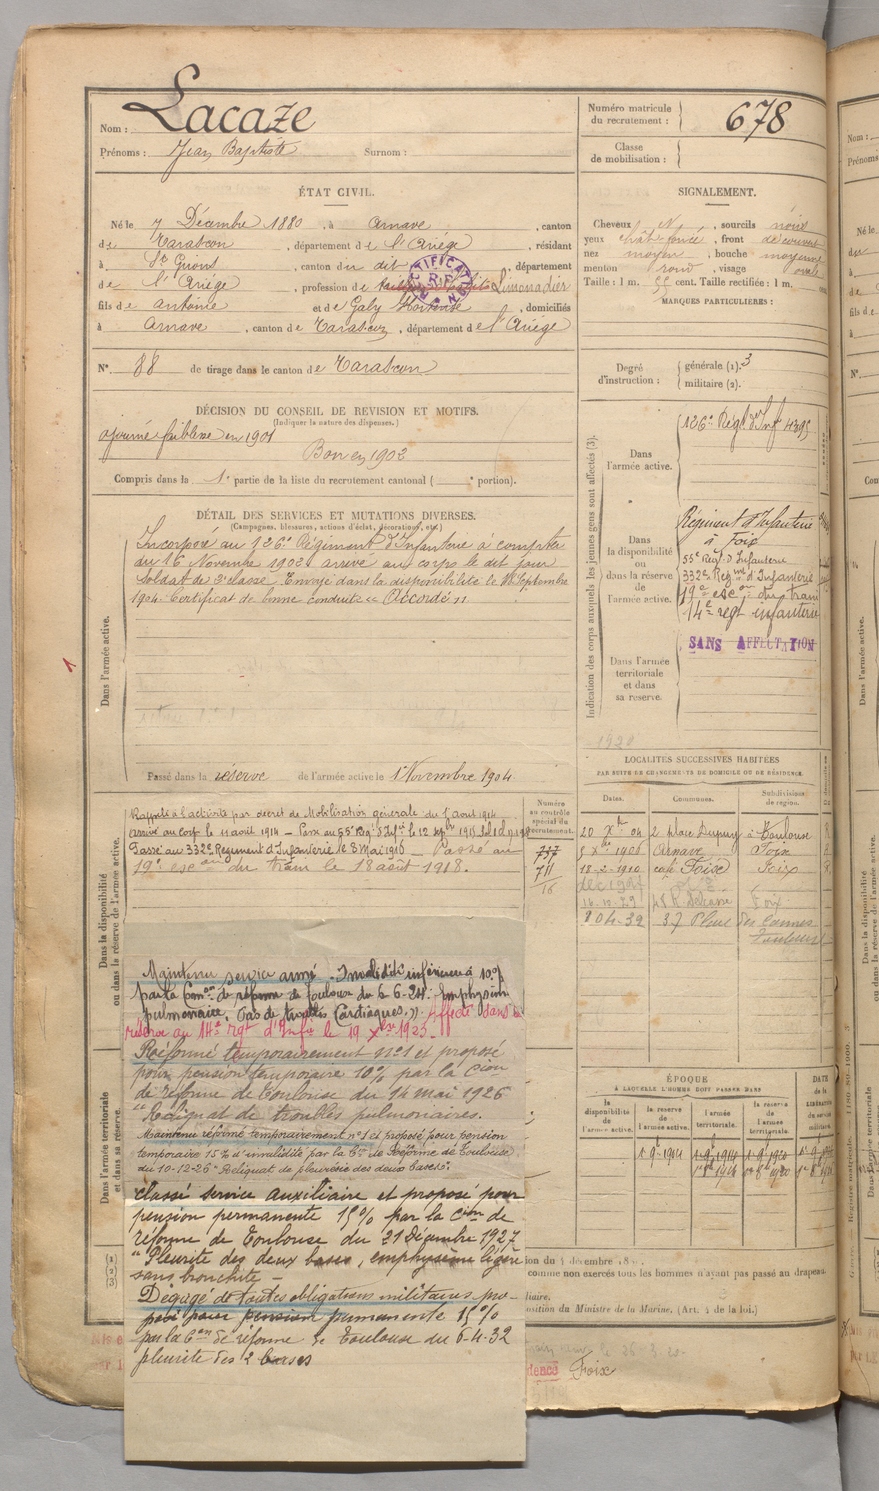 Nom : Lacaze
Prénoms : Jean Baptiste Surnom :
Numéro matricule
du recrutement : 678
Classe
de mobilisation :
ÉTAT CIVIL.
Né le 7 Décembre 1880, à Arnave, canton
de Tarascon, département de l'Ariège, résidant
à St Girons, canton du dit, département
de l'Ariège, profession de Limonadier
fils de Antoine et de Galy Hortense, domiciliés
à Arnave, canton de Tarascon, département de l'Ariège
N° 88 de tirage dans le canton de Tarascon
DÉCISION DU CONSEIL DE REVISION ET MOTIFS.
(Indiquer la nature des dispenses.)
ajourné faiblesse en 1901
Bon en 1902
Compris dans la 1e partie de la liste du recrutement cantonal ( e portion).
DÉTAIL DES SERVICES ET MUTATIONS DIVERSES.
(Campagnes, blessures, actions d'éclat, décorations, etc.)
Dans l'armée active.
Incorporé au 126e Régiment d'Infanterie à compter
du 16 Novembre 1902 arrivé au corps le dit jour
soldat de 2e classe Envoyé dans la disponibilité le Septembre
1904. Certificat de bonne conduite "Accordé"
Passé dans la réserve de l'armée active le 1 Novembre 1904
SIGNALEMENT.
Cheveux N, sourcils noirs
yeux chât foncé, front découvert
nez moyen, bouche moyenne
menton rond, visage ovale
Taille : 1 m. 55 cent. Taille rectifiée : 1 m.
MARQUES PARTICULIÈRES :
Degré
d'instruction :
générale (1). 3
militaire (2).
Indication des corps auxquels les jeunes gens sont affectés (3).
Dans
l'armée active.
126e Régt d'Inf 4395
Dans
la disponibilité
ou
dans la réserve
de
l'armée active.
Régiment d'Infanterie
à Foix
55e Régt d'Infanterie
332e Régt d'Infanterie
19e esc on du train
14e regt infanterie
SANS AFFECTATION
Dans l'armée
territoriale
et dans
sa reserve.
LOCALITÉS SUCCESSIVES HABITÉES
PAR SUITE DE CHANGEMENTS DE DOMICILE OU DE RÉSIDENCE.
Dates. Communes. Subdivisions
de région.
20 Xbre 04 2 place Dupuy à Toulouse
5 Xbre 1906 Arnave Foix
18-2-1910 café Foix Foix
16.10.29 Foix
8 04-39 37 Place des Carmes
Toulouse
Dans la disponibilité
ou dans la réserve de l'armée active.
Numéro
au contrôle
spécial du
recrutement.
737
711
16
Rappelé à l'activité par décret de Mobilisation générale du 1 août 1914
arrivé au corps le 11 août 1914 – Passé au 55e Régt d'Infie le 12 1915
Passé au 332e Régiment d'Infanterie le 8 Mai 1916 – Passé au
19e esc on du train le 18 août 1918.
Maintenu service armé. Invalidité inférieure à 10%
par la Com on de réforme de Toulouse du 6-6-24. Emphysème
pulmonaire, pas de troubles cardiaques. Affecté dans la
réserve au 14e rgt d'Infie le 19 Xbre 1925.
Réformé temporairement n°1 et proposé
pour pension temporaire 10% par la Cion
de réforme de Toulouse du 14 mai 1926
"Reliquat de troubles pulmoniaires.
Maintenu réformé temporairement n°1 et proposé pour pension
temporaire 15% d'invalidité par la Con de Réforme de Toulouse
du 10-12-26 "Reliquat de pleurésie des deux bases".
Classé service auxiliaire et proposé pour
pension permanente 15% par la Cion de
réforme de Toulouse du 21 Décembre 1927
"Pleurite des deux bases, emphysème léger
sans bronchite –
Dégagé de toutes obligations militaires pro-
posé pour pension permanente 15%
par la Con de réforme de Toulouse du 6-4-32
pleurite des 2 bases
Dans l'armée territoriale
et dans sa réserve.
ÉPOQUE
À LAQUELLE L'HOMME DOIT PASSER DANS
la
disponibilité
de
l'armée active.
la réserve
de
l'armée active.
l'armée
territoriale.
la réserve
de
l'armée
territoriale.
DATE
de la
LIBÉRATION
du service
militaire.
(1)
(2)
(3)
comme non exercés tous les hommes n'ayant pas passé au drapeau
du Ministre de la Marine. (Art. 4 de la loi.)
Foix